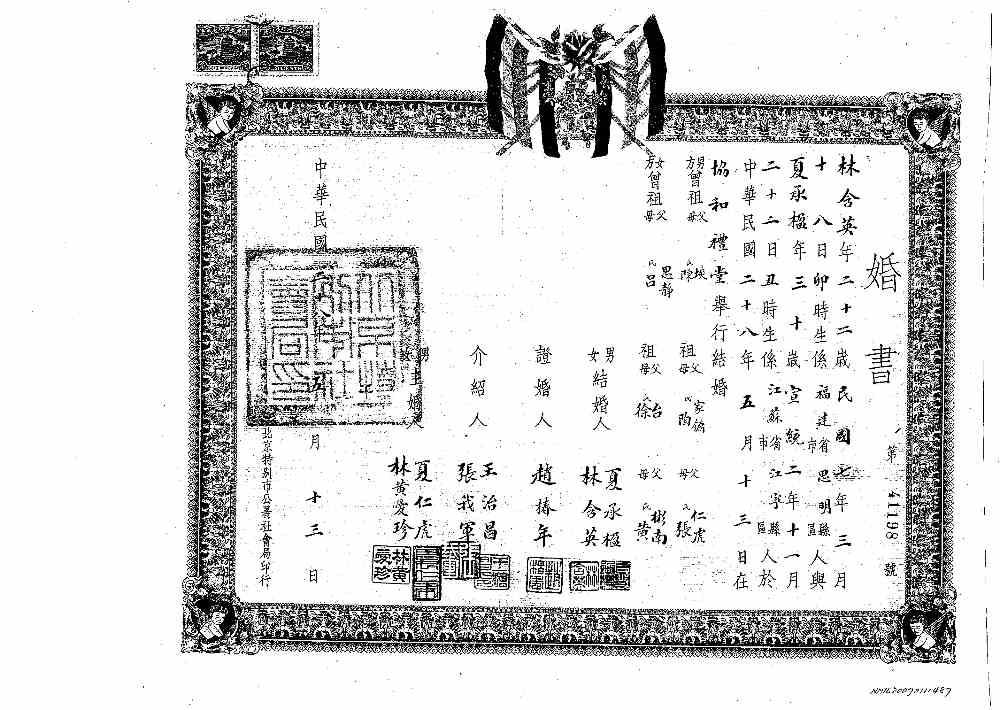 婚書
第 41198 號
林含英年二十二歲民國七年三月
十八日卯時生係福建省思明縣人與
夏承楹年三十歲宣統二年十一月
二十二日丑時生係江蘇省江寧縣人於
中華民國二十八年五月十三日在
協和禮堂舉行結婚
男方曾祖父母 氏陳 祖父母 家鎬 氏陶 父母 仁虎 氏張
女方曾祖父母 思靜 氏呂 祖父母 台 氏徐 父母 彬南 氏黃
男結婚人 夏承楹
女結婚人 林含英
證婚人 趙椿年
介紹人 王治昌
張我軍
男 主婚人 夏仁虎
林黃愛珍
中華民國 五月十三日
北京特別市公署社會局印行
林黃愛珍
NMTL20070111487